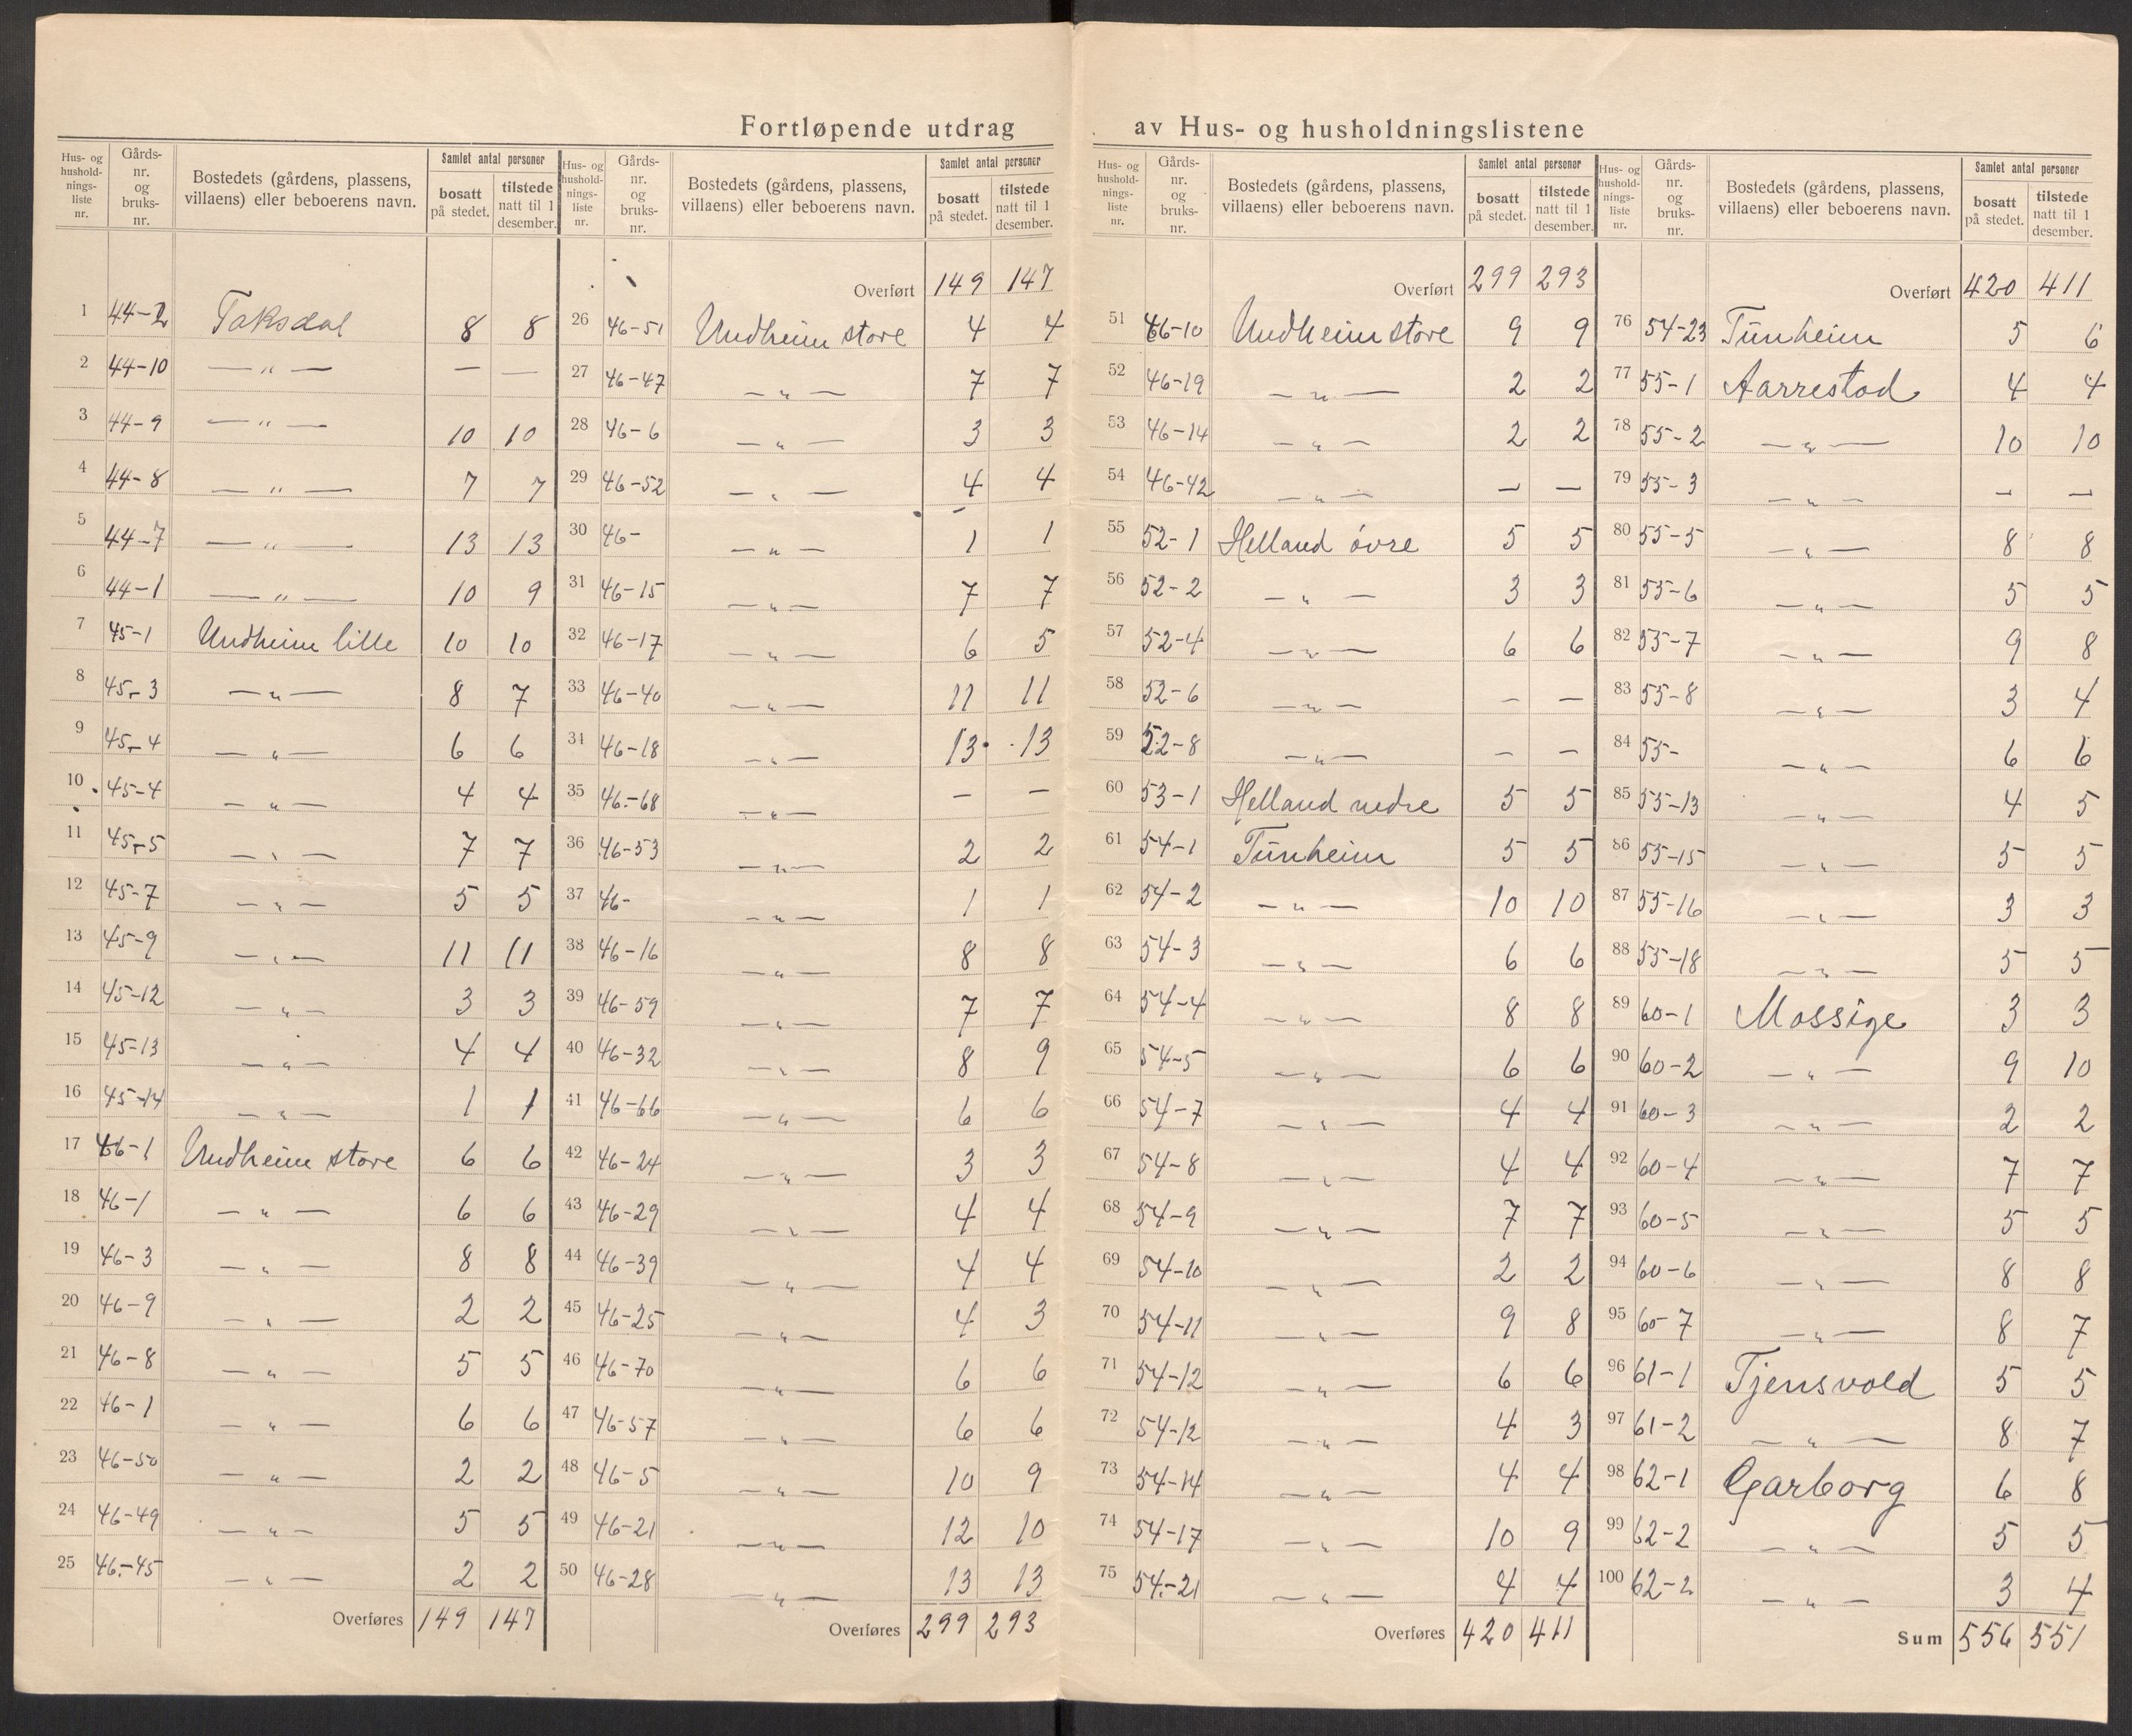 Fortløpende utdrag av Hus- og husholdningslistene
Hus- og husholdnings- liste nr. | Gårds- nr. og bruks- nr. | Bostedets (gårdens, plassens, villaens) eller beboerens navn. | Samlet antal personer | bosatt på stedet. | tilstede natt til 1 desember.
1 44-2 Taksdal 8 8
2 44-10 — " — — —
3 44-9 — " — 10 10
4 44-8 — " — 7 7
5 44-7 — " — 13 13
6 44-1 — " — 10 9
7 45-1 Undheim lille 10 10
8 45-3 — " — 8 7
9 45-4 — " — 6 6
10 45-4 — " — 4 4
11 45-5 — " — 7 7
12 45-7 — " — 5 5
13 45-9 — " — 11 11
14 45-12 — " — 3 3
15 45-13 — " — 4 4
16 45-14 — " — 1 1
17 46-1 Undheim store 6 6
18 46-1 — " — 6 6
19 46-3 — " — 8 8
20 46-9 — " — 2 2
21 46-8 — " — 5 5
22 46-1 — " — 6 6
23 46-50 — " — 2 2
24 46-49 — " — 5 5
25 46-45 — " — 2 2
Overføres 149 147
Hus- og husholdnings- liste nr. | Gårds- nr. og bruks- nr. | Bostedets (gårdens, plassens, villaens) eller beboerens navn. | Samlet antal personer | bosatt på stedet. | tilstede natt til 1 desember.
Overført 149 147
26 46-51 Undheim store 4 4
27 46-47 — " — 7 7
28 46-6 — " — 3 3
29 46-52 — " — 4 4
30 46- — " — 1 1
31 46-15 — " — 7 7
32 46-17 — " — 6 5
33 46-40 — " — 11 11
34 46-18 — " — 13 13
35 46-68 — " — — —
36 46-53 — " — 2 2
37 46- — " — 1 1
38 46-16 — " — 8 8
39 46-59 — " — 7 7
40 46-32 — " — 8 9
41 46-66 — " — 6 6
42 46-24 — " — 3 3
43 46-29 — " — 4 4
44 46-39 — " — 4 4
45 46-25 — " — 4 3
46 46-70 — " — 6 6
47 46-57 — " — 6 6
48 46-5 — " — 10 9
49 46-21 — " — 12 10
50 46-28 — " — 13 13
Overføres 299 293
Hus- og husholdnings- liste nr. | Gårds- nr. og bruks- nr. | Bostedets (gårdens, plassens, villaens) eller beboerens navn. | Samlet antal personer | bosatt på stedet. | tilstede natt til 1 desember.
Overført 299 293
51 46-10 Undheim store 9 9
52 46-19 — " — 2 2
53 46-14 — " — 2 2
54 46-42 — " — — —
55 52-1 Helland óvre 5 5
56 52-2 — " — 3 3
57 52-4 — " — 6 6
58 52-6 — " — — —
59 52-8 — " — — —
60 53-1 Helland nedre 5 5
61 54-1 Tunheim 5 5
62 54-2 — " — 10 10
63 54-3 — " — 6 6
64 54-4 — " — 8 8
65 54-5 — " — 6 6
66 54-7 — " — 4 4
67 54-8 — " — 4 4
68 54-9 — " — 7 7
69 54-10 — " — 2 2
70 54-11 — " — 9 8
71 54-12 — " — 6 6
72 54-12 — " — 4 3
73 54-14 — " — 4 4
74 54-17 — " — 10 9
75 54-21 — " — 4 4
Overføres 420 411
Hus- og husholdnings- liste nr. | Gårds- nr. og bruks- nr. | Bostedets (gårdens, plassens, villaens) eller beboerens navn. | Samlet antal personer | bosatt på stedet. | tilstede natt til 1 desember.
Overført 420 411
76 54-23 Tunheim 5 6
77 55-1 Aarrestad 4 4
78 55-2 — " — 10 10
79 55-3 — " — — —
80 55-5 — " — 8 8
81 55-6 — " — 5 5
82 55-7 — " — 9 8
83 55-8 — " — 3 4
84 55- — " — 6 6
85 55-13 — " — 4 5
86 55-15 — " — 5 5
87 55-16 — " — 3 3
88 55-18 — " — 5 5
89 60-1 Mossige 3 3
90 60-2 — " — 9 10
91 60-3 — " — 2 2
92 60-4 — " — 7 7
93 60-5 — " — 5 5
94 60-6 — " — 8 8
95 60-7 — " — 8 7
96 61-1 Tjensvold 5 5
97 61-2 — " — 8 7
98 62-1 Garborg 6 8
99 62-2 — " — 5 5
100 62-2 — " — 3 4
Sum 556 551